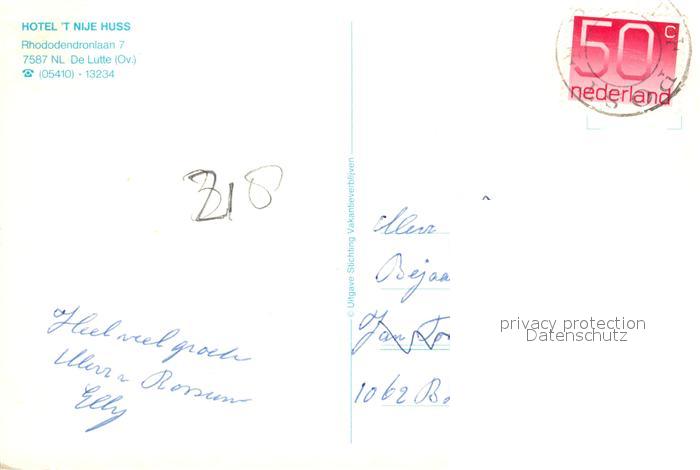 HOTEL 'T NIJE HUSS
Rhododendronlaan 7
7587 NL De Lutte (Ov.)
☎ (05410) - 13234
50 c
nederland
318
© Uitgave Stichting Vakantieverblijven
Mevr
Bejaa
Jan
1062 B
privacy protection
Datenschutz
Heel veel groeten
Mevr v Rossum
Elly